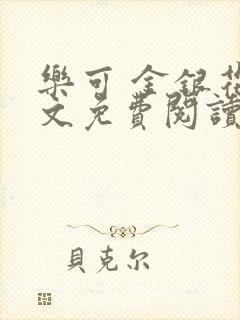 樂可 金銀花
文免費閱讀
貝克尔